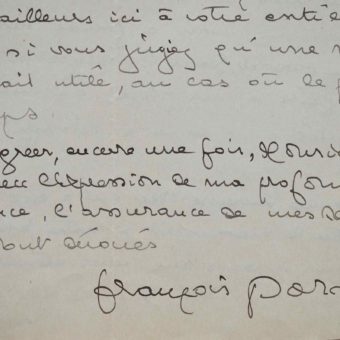 ailleurs ici à votre enti
si vous jugiez qu'une
ait utile, au cas où le
ps
gréer, encore une fois, Monsi
l'expression de ma profon
ce, l'assurance de mes
dévoués
françois por